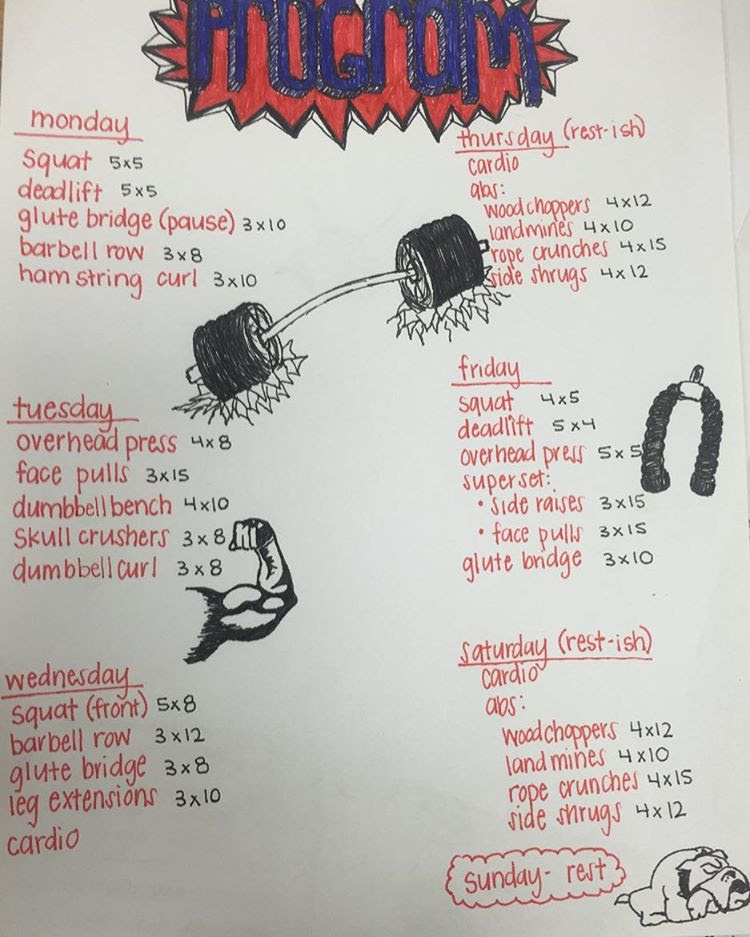 Program
monday
squat 5x5
deadlift 5x5
glute bridge (pause) 3x10
barbell row 3x8
hamstring curl 3x10
tuesday
overhead press 4x8
face pulls 3x15
dumbbell bench 4x10
skull crushers 3x8
dumbbell curl 3x8
wednesday
squat (front) 5x8
barbell row 3x12
glute bridge 3x8
leg extensions 3x10
cardio
thursday (rest-ish)
cardio
abs:
woodchoppers 4x12
landmines 4x10
rope crunches 4x15
side shrugs 4x12
friday
squat 4x5
deadlift 5x4
overhead press 5x5
superset:
• side raises 3x15
• face pulls 3x15
glute bridge 3x10
saturday (rest-ish)
cardio
abs:
woodchoppers 4x12
landmines 4x10
rope crunches 4x15
side shrugs 4x12
sunday- rest